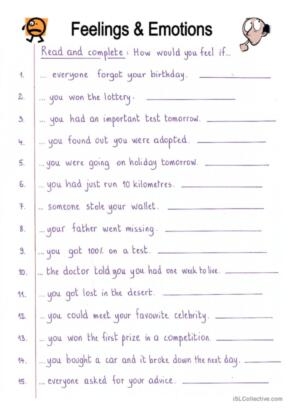 Feelings & Emotions
Read and complete : How would you feel if...
1. ... everyone forgot your birthday.
2. ... you won the lottery.
3. ... you had an important test tomorrow.
4. ... you found out you were adopted.
5. ... you were going on holiday tomorrow.
6. ... you had just run 10 kilometres.
7. ... someone stole your wallet.
8. ... your father went missing.
9. ... you got 100% on a test.
10. ... the doctor told you you had one week to live.
11. ... you got lost in the desert.
12. ... you could meet your favourite celebrity.
13. ... you won the first prize in a competition.
14. ... you bought a car and it broke down the next day.
15. ... everyone asked for your advice.
iSLCollective.com